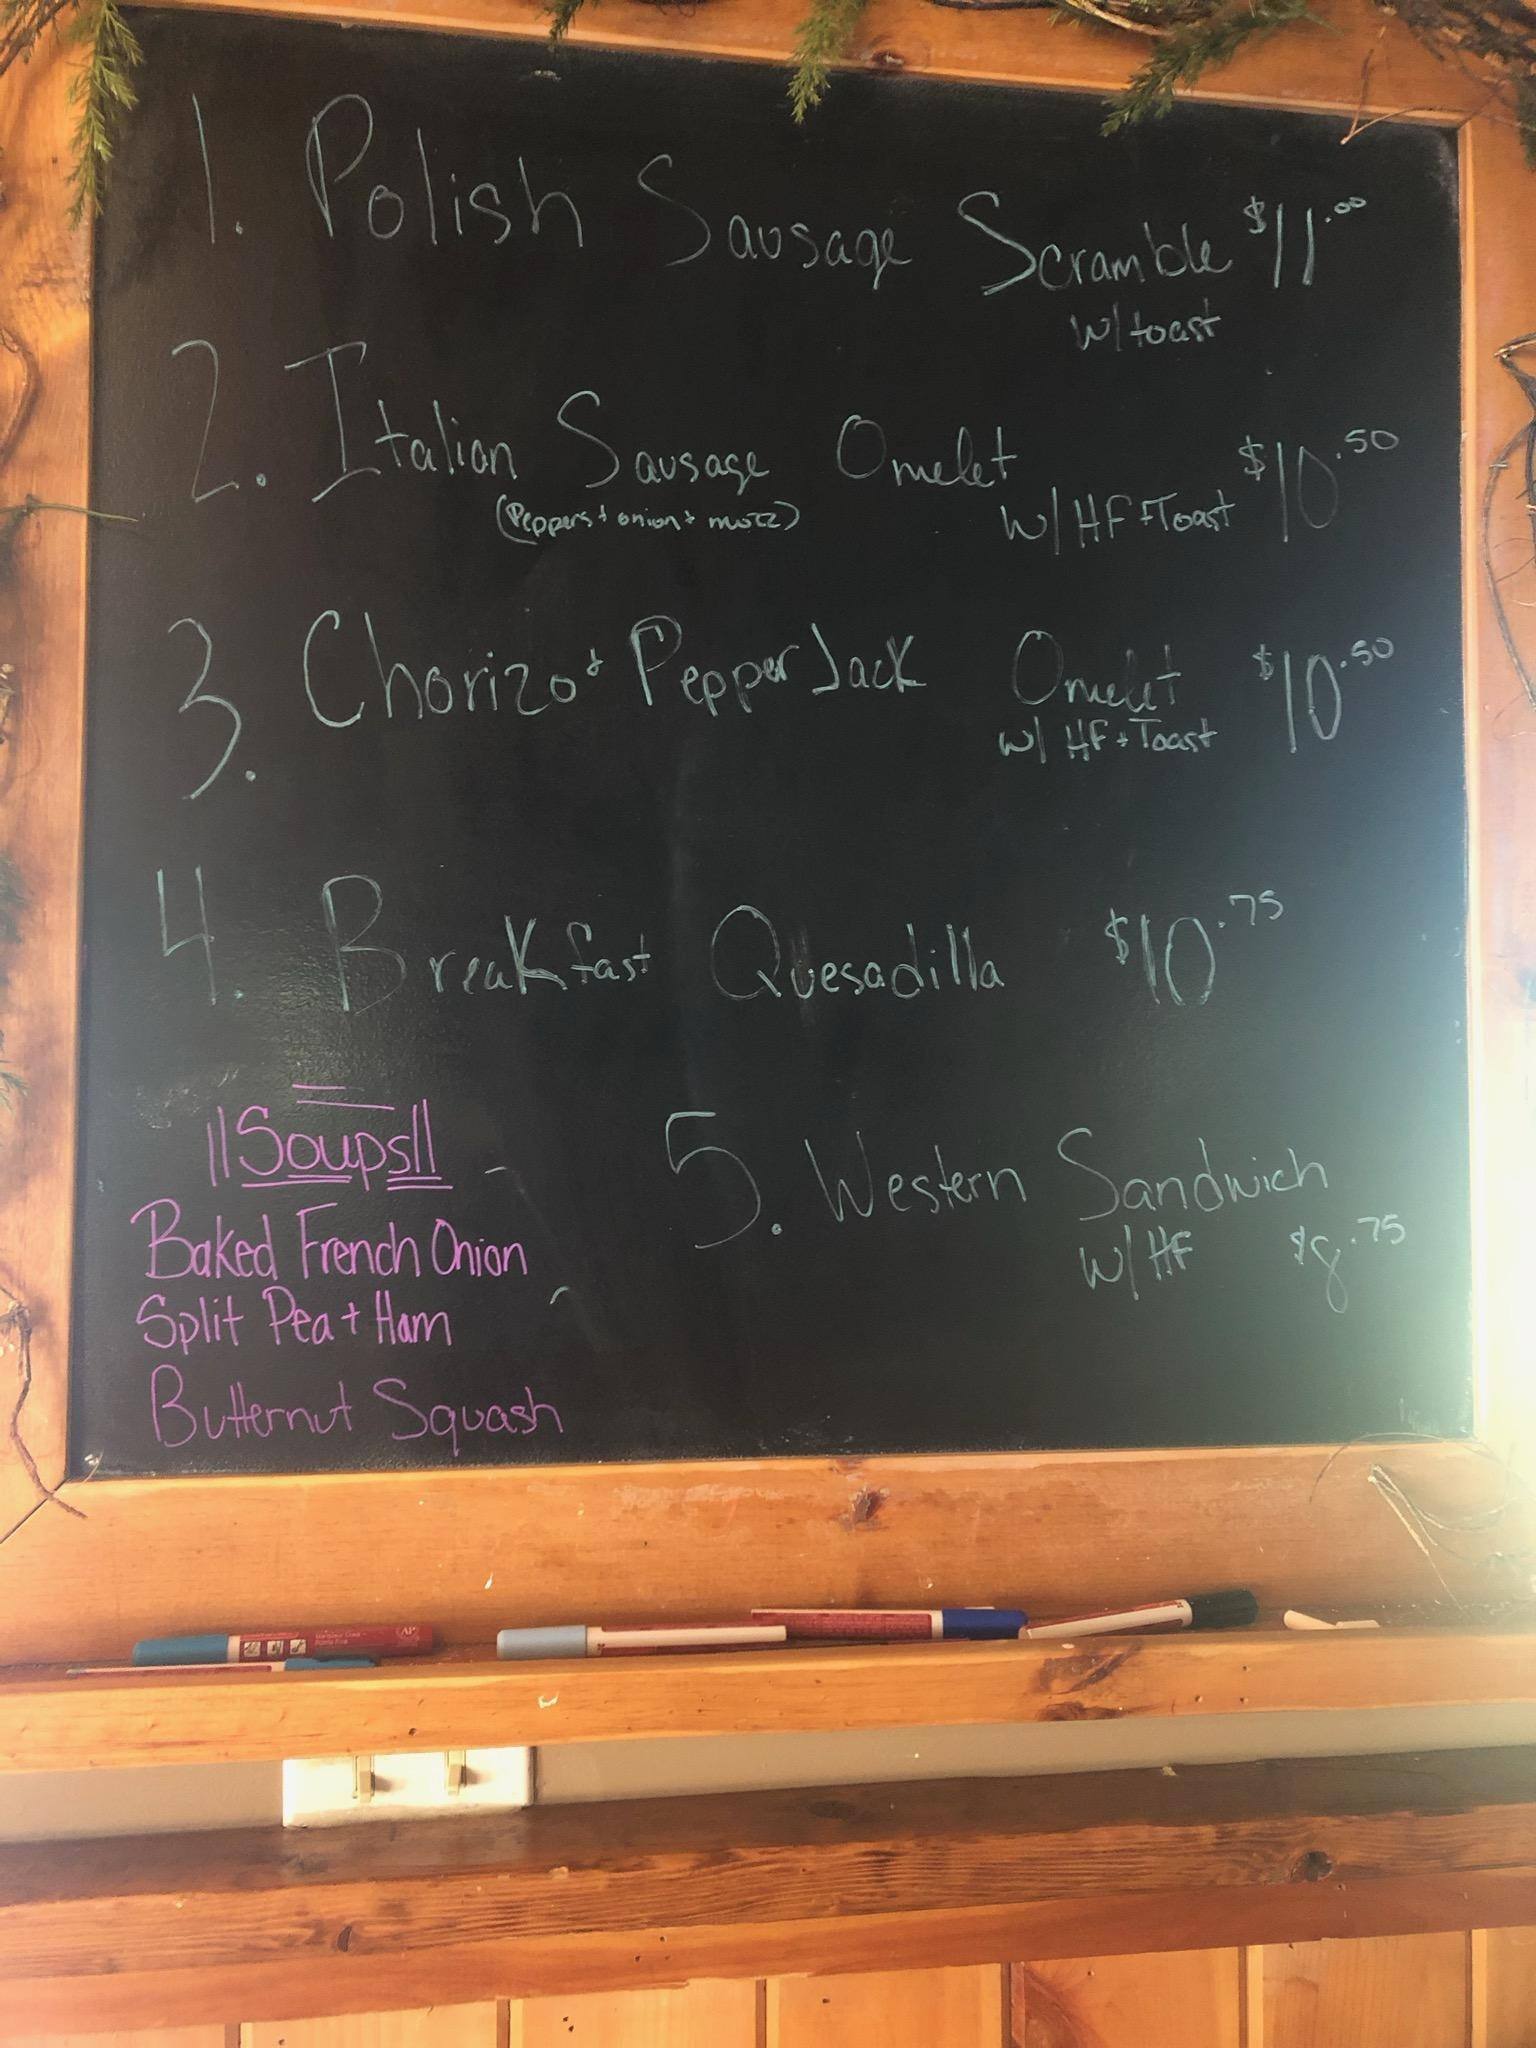 1. Polish Sausage Scramble $11.00
w/toast
2. Italian Sausage Omelet $10.50
(Peppers + onion + mozz) w/ HF + Toast
3. Chorizo + Pepper Jack Omelet $10.50
w/ HF + Toast
4. Breakfast Quesadilla $10.75
||Soups||
Baked French Onion
Split Pea + Ham
Butternut Squash
5. Western Sandwich
w/ HF $8.75
AP